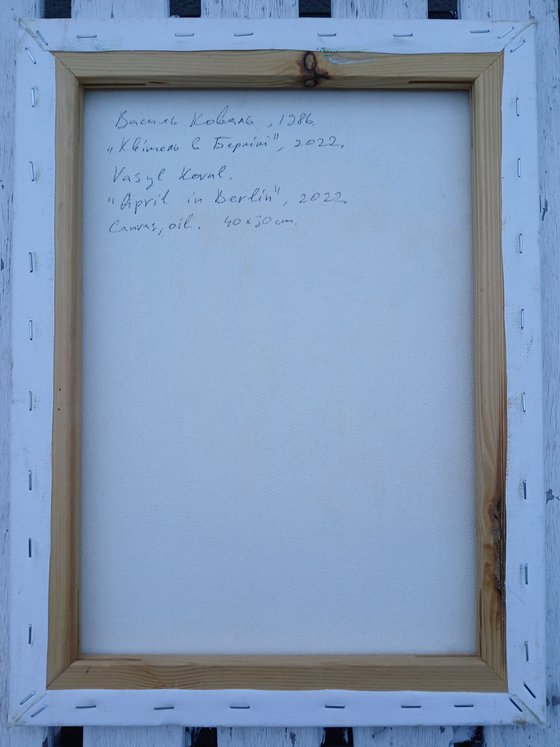 Василь Коваль, 1986
"Квітень в Берліні", 2022.
Vasyl Koval.
"April in Berlin", 2022
Canvas, oil. 40x30cm.